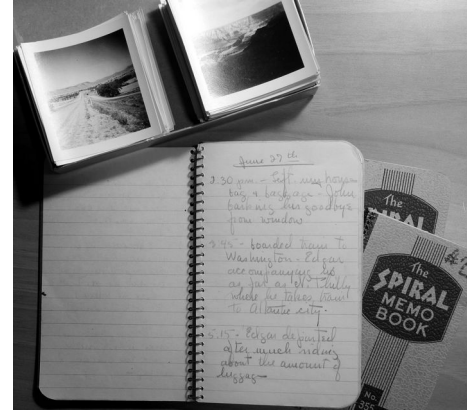 June 27th
2.30 pm - Left my house
bag & baggage - John
barking his goodbye
from window
3.45 - boarded train to
Washington - Edgar
accompanying us
as far as N. Philly
where he takes train
to Atlantic city.
5.15 - Edgar departed
after much
about the amount of
luggage
The
SPIRAL
The
SPIRAL
MEMO
BOOK
No.
355